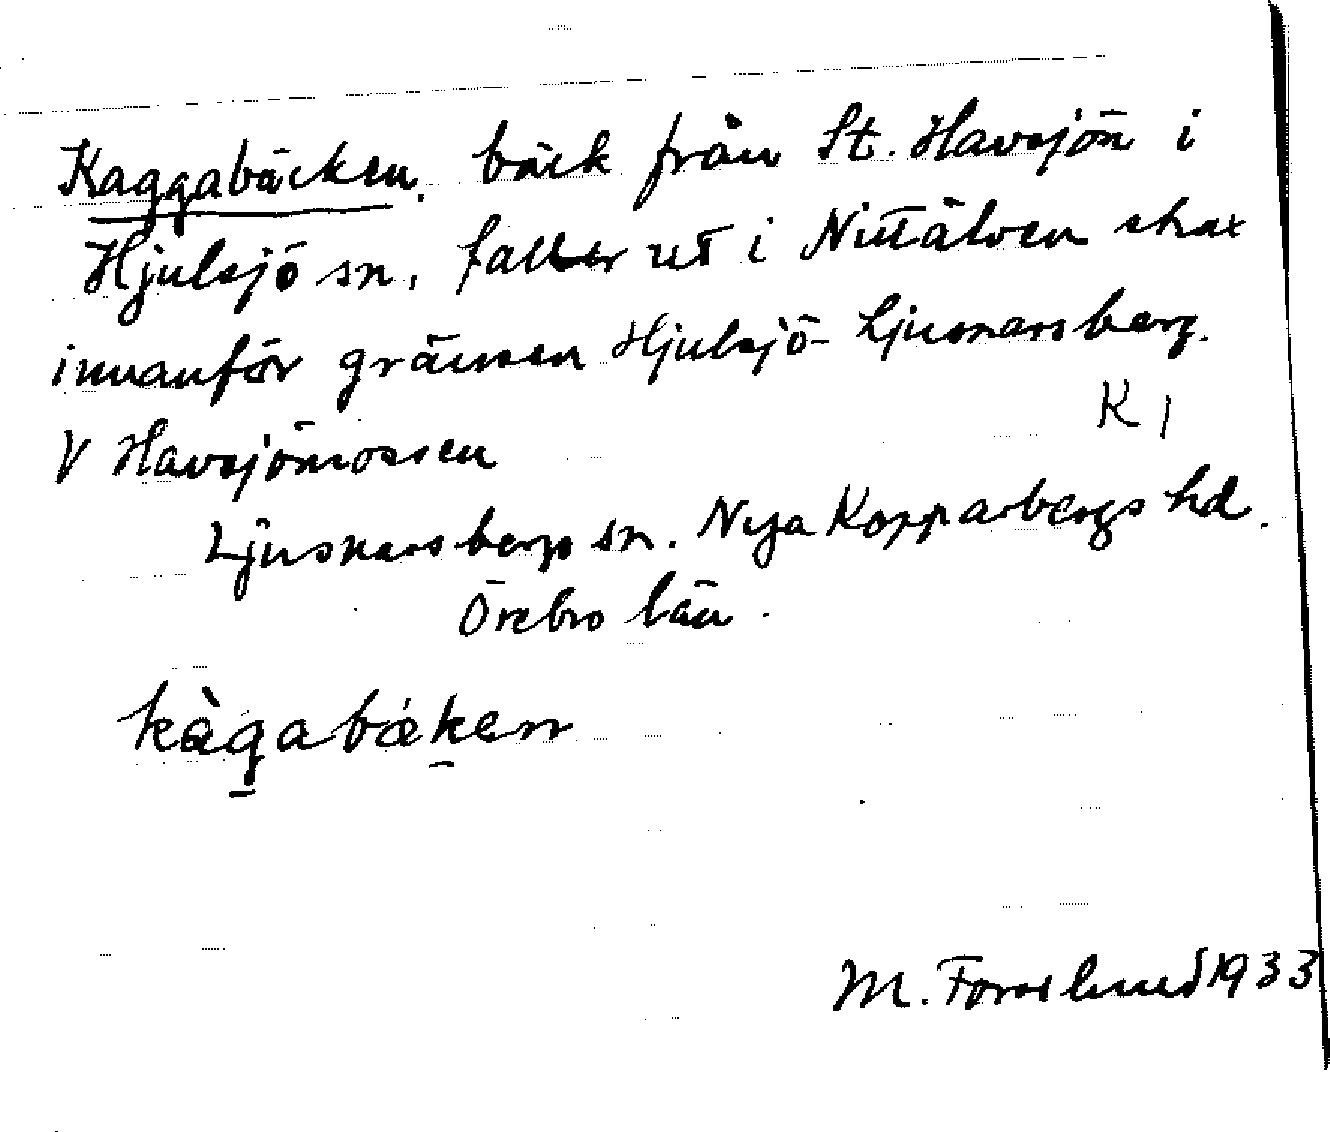 Kaggabäcken. bäck från St. Havsjön i
Hjulsjö sn, faller ut i Nittälven strax
innanför gränsen Hjulsjö-Ljusnarsberg.
K 1
V Havsjömossen
Ljusnarsbergs sn. Nya Kopparbergs hd.
Örebro län.
kàgabǽken
M. Forslund 1933